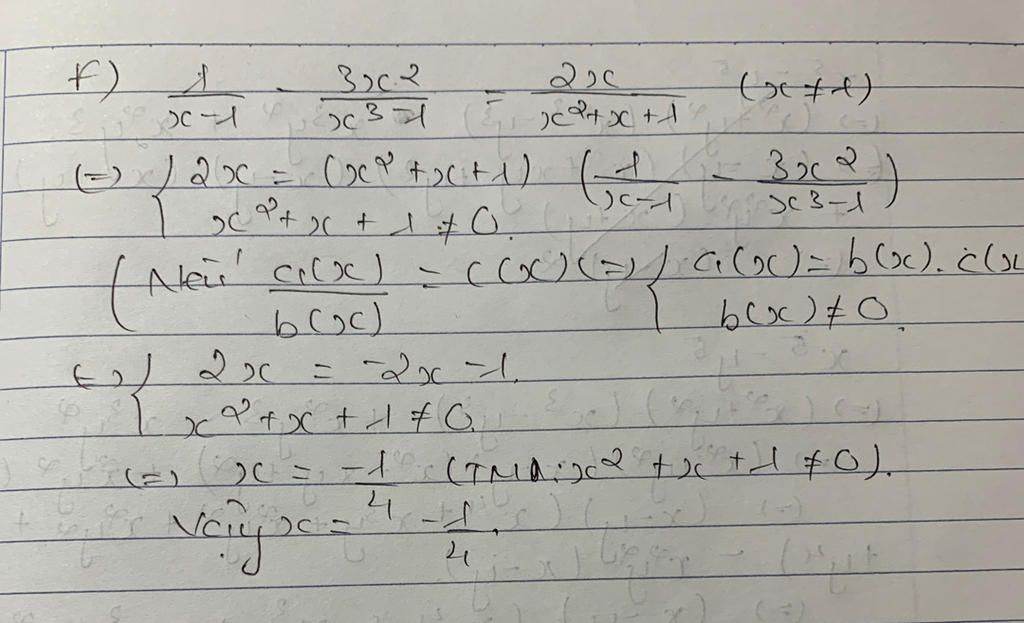 f) 1/(x-1) - 3x²/(x³-1) = 2x/(x²+x+1) (x≠1)
(=) { 2x = (x²+x+1) (1/(x-1) - 3x²/(x³-1))
x²+x+1≠0.
(Nếu a(x)/b(x) = c(x) (=) { a(x) = b(x).c(x
b(x)≠0.
(=) { 2x = -2x-1.
x²+x+1≠0.
(=) x = -1/4 (TMĐ: x²+x+1≠0).
Vậy x = -1/4.